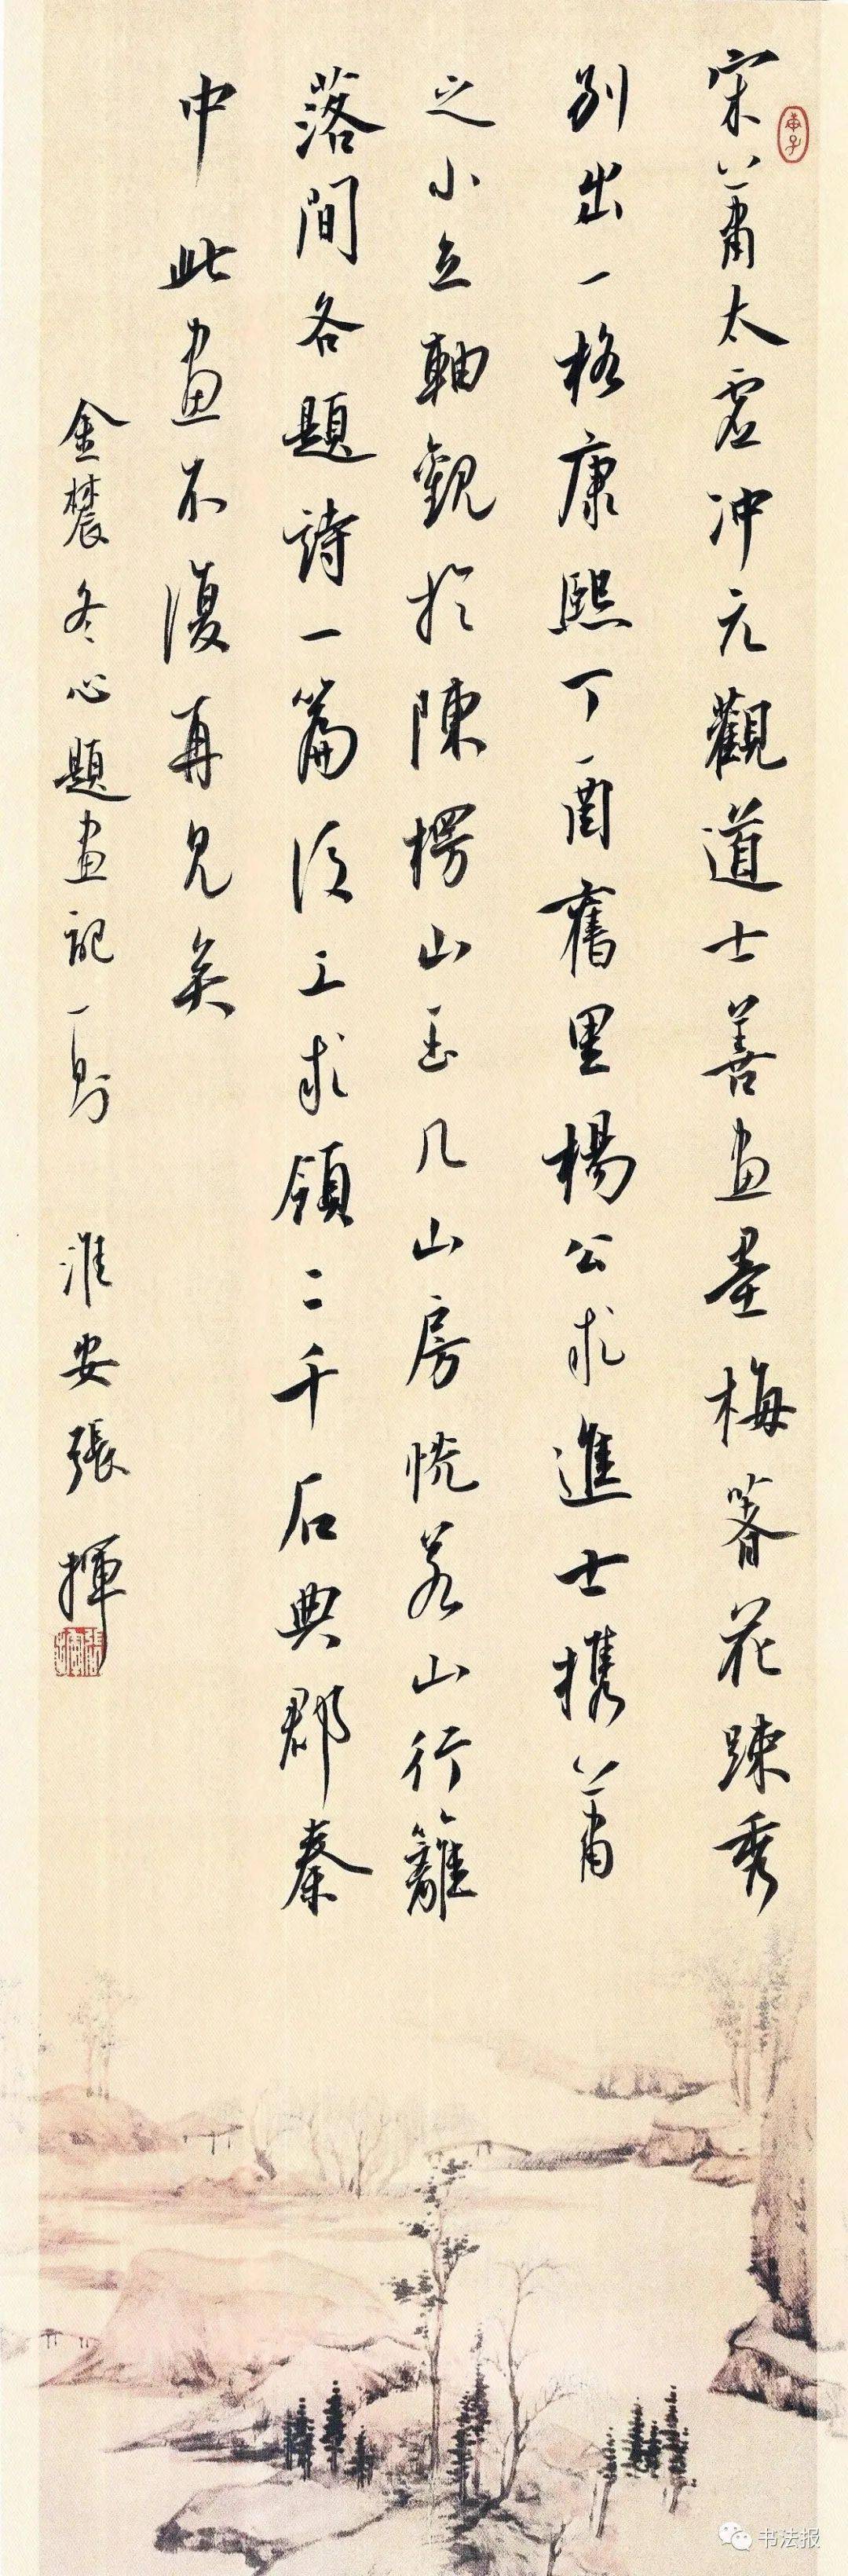 宋萧太虚冲元觀道士善画墨梅著花疎秀
别出一格康熙丁酉舊里楊公求進士携萧
之小立軸觀於陳楞山玉几山房恍若山行籬
落間各題詩一篇後工求領二千石典郡秦
中此画不復再见矣
金農冬心題画記一則 淮安張揮
书法报